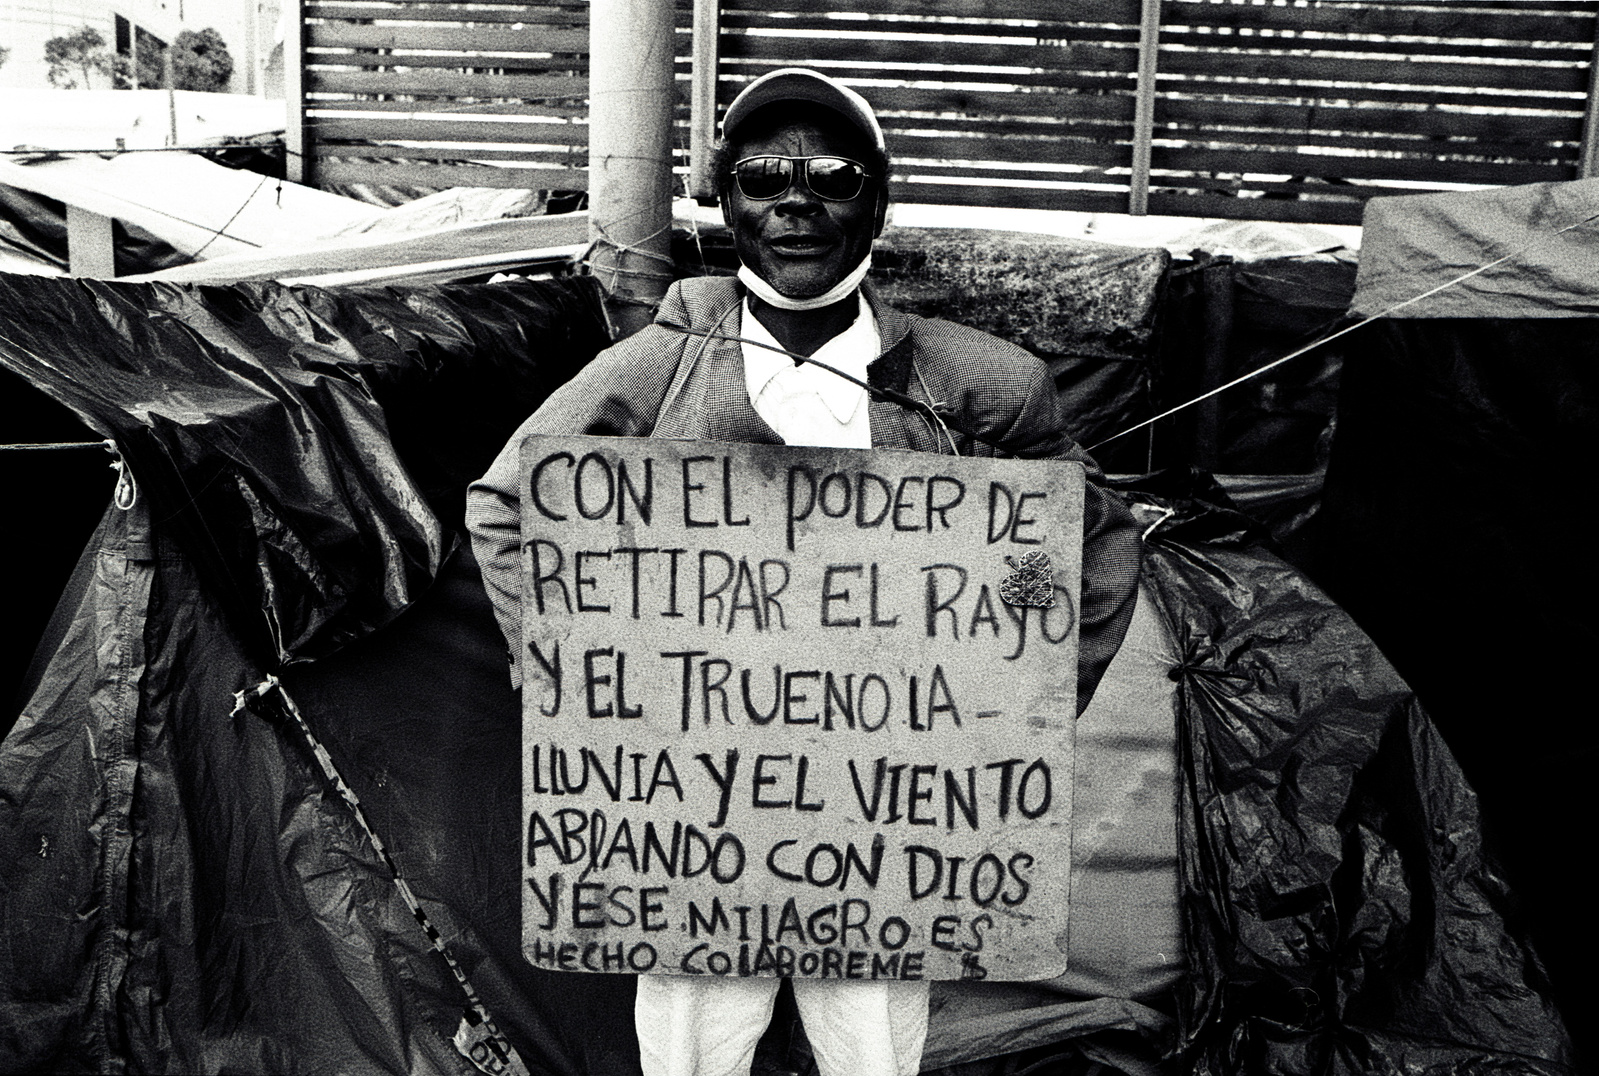 CON EL PODER DE
RETIRAR EL RAYO
Y EL TRUENO LA -
LLUVIA Y EL VIENTO
ABLANDO CON DIOS
Y ESE MILAGRO ES
HECHO COLABOREME $